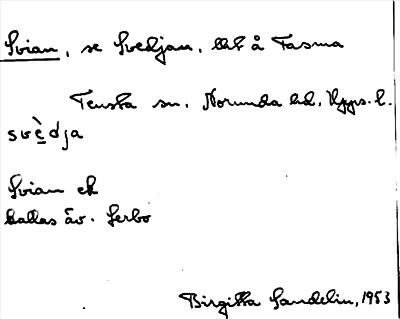 Svian, se Svedjan, del å Tasma
Tensta sn. Norunda hd. Upps. l.
svèdja
Svian ek
kallas äv. Serbo
Birgitta Sandelin, 1953